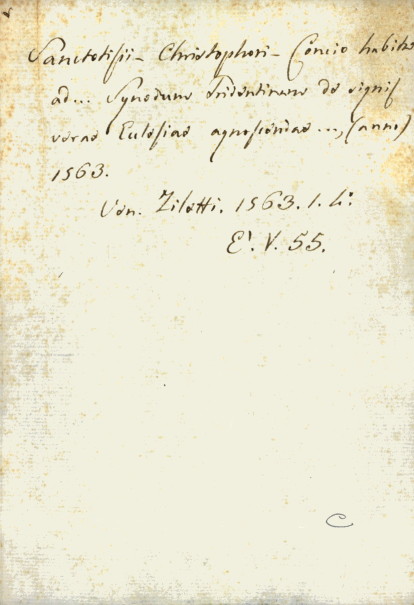 Sanctotisii - Christophori - Concio habita
ad... Synodum Tridentinam de signis
verae Eclesiae agnoscendae..., (anno)
1563.
Ven. Ziletti. 1563. 1. 4°.
E'. V. 55.
C